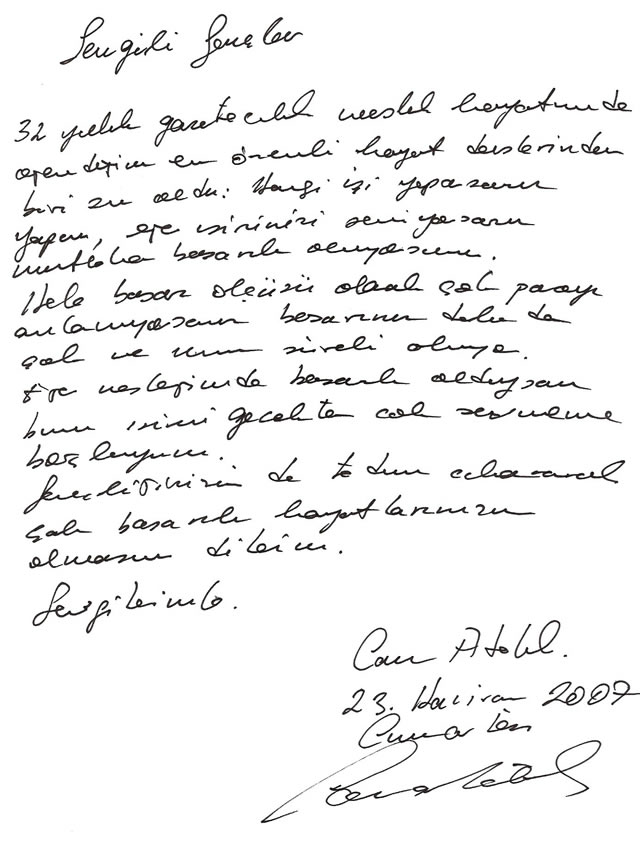 Sevgili Gençler
32 yıllık gazetecilik meslek hayatımda
öğrendiğim en önemli hayat derslerinden
biri şu oldu: Hangi işi yaparsanız
yapın, eğer işinizi seviyorsanız
mutlaka başarılı oluyorsunuz.
Hele başarı ölçüsü olarak çok parayı
anlamıyorsanız başarınız daha da
çok ve uzun süreli oluyor.
Eğer mesleğimde başarılı olduysam
bunu işimi gerçekten çok sevmeme
borçluyum.
Gençliğinizin de tadını çıkararak
çok başarılı hayatlarınızın
olmasını dilerim.
Sevgilerimle.
Can Ataklı.
23. Haziran 2007
Cumartesi